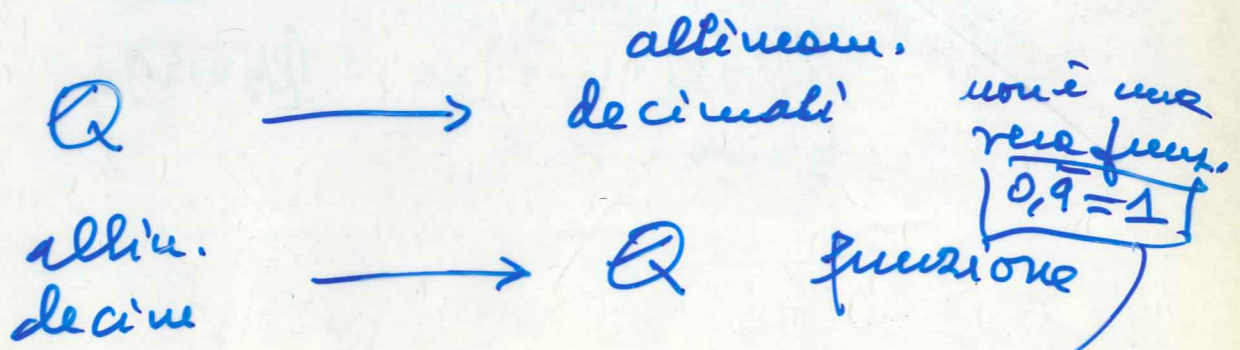 Q → allineam.
decimali
non è una
vera funz.
0,9̅ = 1
allin.
decim → Q funzione